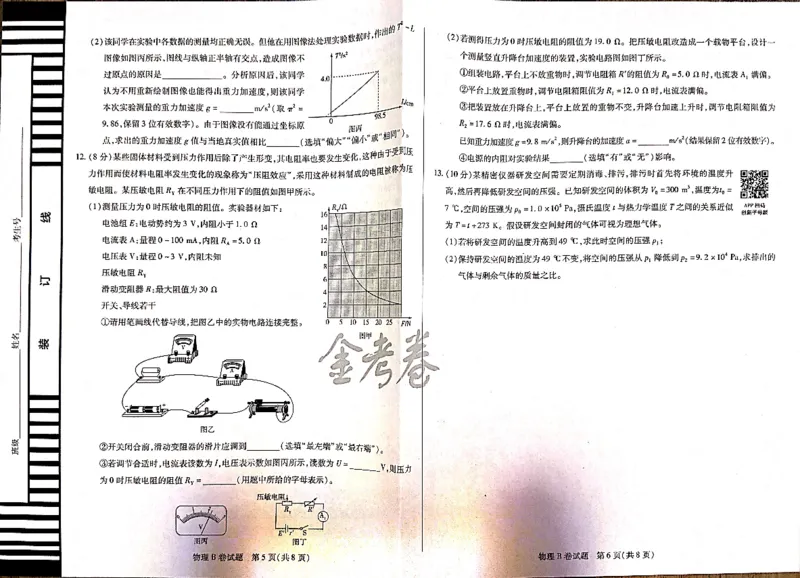 (2)该同学在实验中各数据的测量均正确无误。但他在用图像法处理实验数据时,作出的 T²-L
图像如图丙所示,图线与纵轴正半轴有交点,造成图像不
过原点的原因是________。分析原因后,该同学
认为不用重新绘制图像也能得出重力加速度,则该同学
本次实验测量的重力加速度 g=________m/s²(取 π²=
9.86,保留3位有效数字)。由于图像没有能通过坐标原
点,求出的重力加速度 g 值与当地真实值相比________(选填“偏大”“偏小”或“相同”)。
T²/s²
4.0
0
98.5
L/cm
图丙
12.(8分)某些固体材料受到压力作用后除了产生形变,其电阻率也要发生变化,这种由于受到压
力作用而使材料电阻率发生变化的现象称为“压阻效应”,采用这种材料制成的电阻被称为压
敏电阻。某压敏电阻 R_Y 在不同压力作用下的阻值如图甲所示。
(1)测量压力为0时压敏电阻的阻值。实验器材如下:
电池组 E:电动势约为3 V,内阻小于1.0 Ω
电流表 A:量程 0~100 mA,内阻 R_A=5.0 Ω
电压表 V:量程 0~3 V,内阻未知
压敏电阻 R_Y
滑动变阻器 R:最大阻值为30 Ω
开关、导线若干
①请用笔画线代替导线,把图乙中的实物电路连接完整。
R_Y/Ω
16
14
12
10
8
6
4
2
0 5 10 15 20 25 F/N
图甲
金考卷
图乙
②开关闭合前,滑动变阻器的滑片应调到________(选填“最左端”或“最右端”)。
③若调节合适时,电流表读数为 I,电压表示数如图丙所示,读数为 U=________V,则压力
为0时压敏电阻的阻值 R_Y=________(用题中所给的字母表示)。
V
图丙
压敏电阻
R_Y
R′
A
E r S
图丁
物理B卷试题 第5页(共8页)
(2)若测得压力为0时压敏电阻的阻值为19.0 Ω。把压敏电阻改造成一个载物平台,设计一
个测量竖直升降台加速度的装置,实验电路图如图丁所示。
①组装电路,平台上不放重物时,调节电阻箱 R′的阻值为 R₀=5.0 Ω时,电流表 A₁ 满偏。
②平台上放置重物时,调节电阻箱阻值为 R₁=12.0 Ω时,电流表满偏。
③把装置放在升降台上,平台上放置的重物不变,升降台加速上升时,调节电阻箱阻值为
R₂=17.6 Ω时,电流表满偏。
已知重力加速度 g=9.8 m/s²,则升降台的加速度 a=________m/s²(结果保留2位有效数字)。
④电源的内阻对实验结果________(选填“有”或“无”)影响。
13.(10分)某精密仪器研发空间需要定期消毒、排污,排污时首先将环境的温度升
高,然后再降低研发空间的压强。已知研发空间的体积为 V₀=300 m³,温度为 t₀=
7 ℃,空间的压强为 p₀=1.0×10⁵ Pa,摄氏温度 t 与热力学温度 T 之间的关系近似
为 T=t+273 K。假设研发空间封闭的气体可视为理想气体。
(1)若将研发空间的温度升高到49 ℃,求此时空间的压强 p₁;
(2)保持研发空间的温度为49 ℃不变,将空间的压强从 p₁ 降低到 p₂=9.2×10⁴ Pa,求排出的
气体与剩余气体的质量之比。
APP扫码
物理B卷试题 第6页(共8页)
班级
姓名
考生号
装
订
线